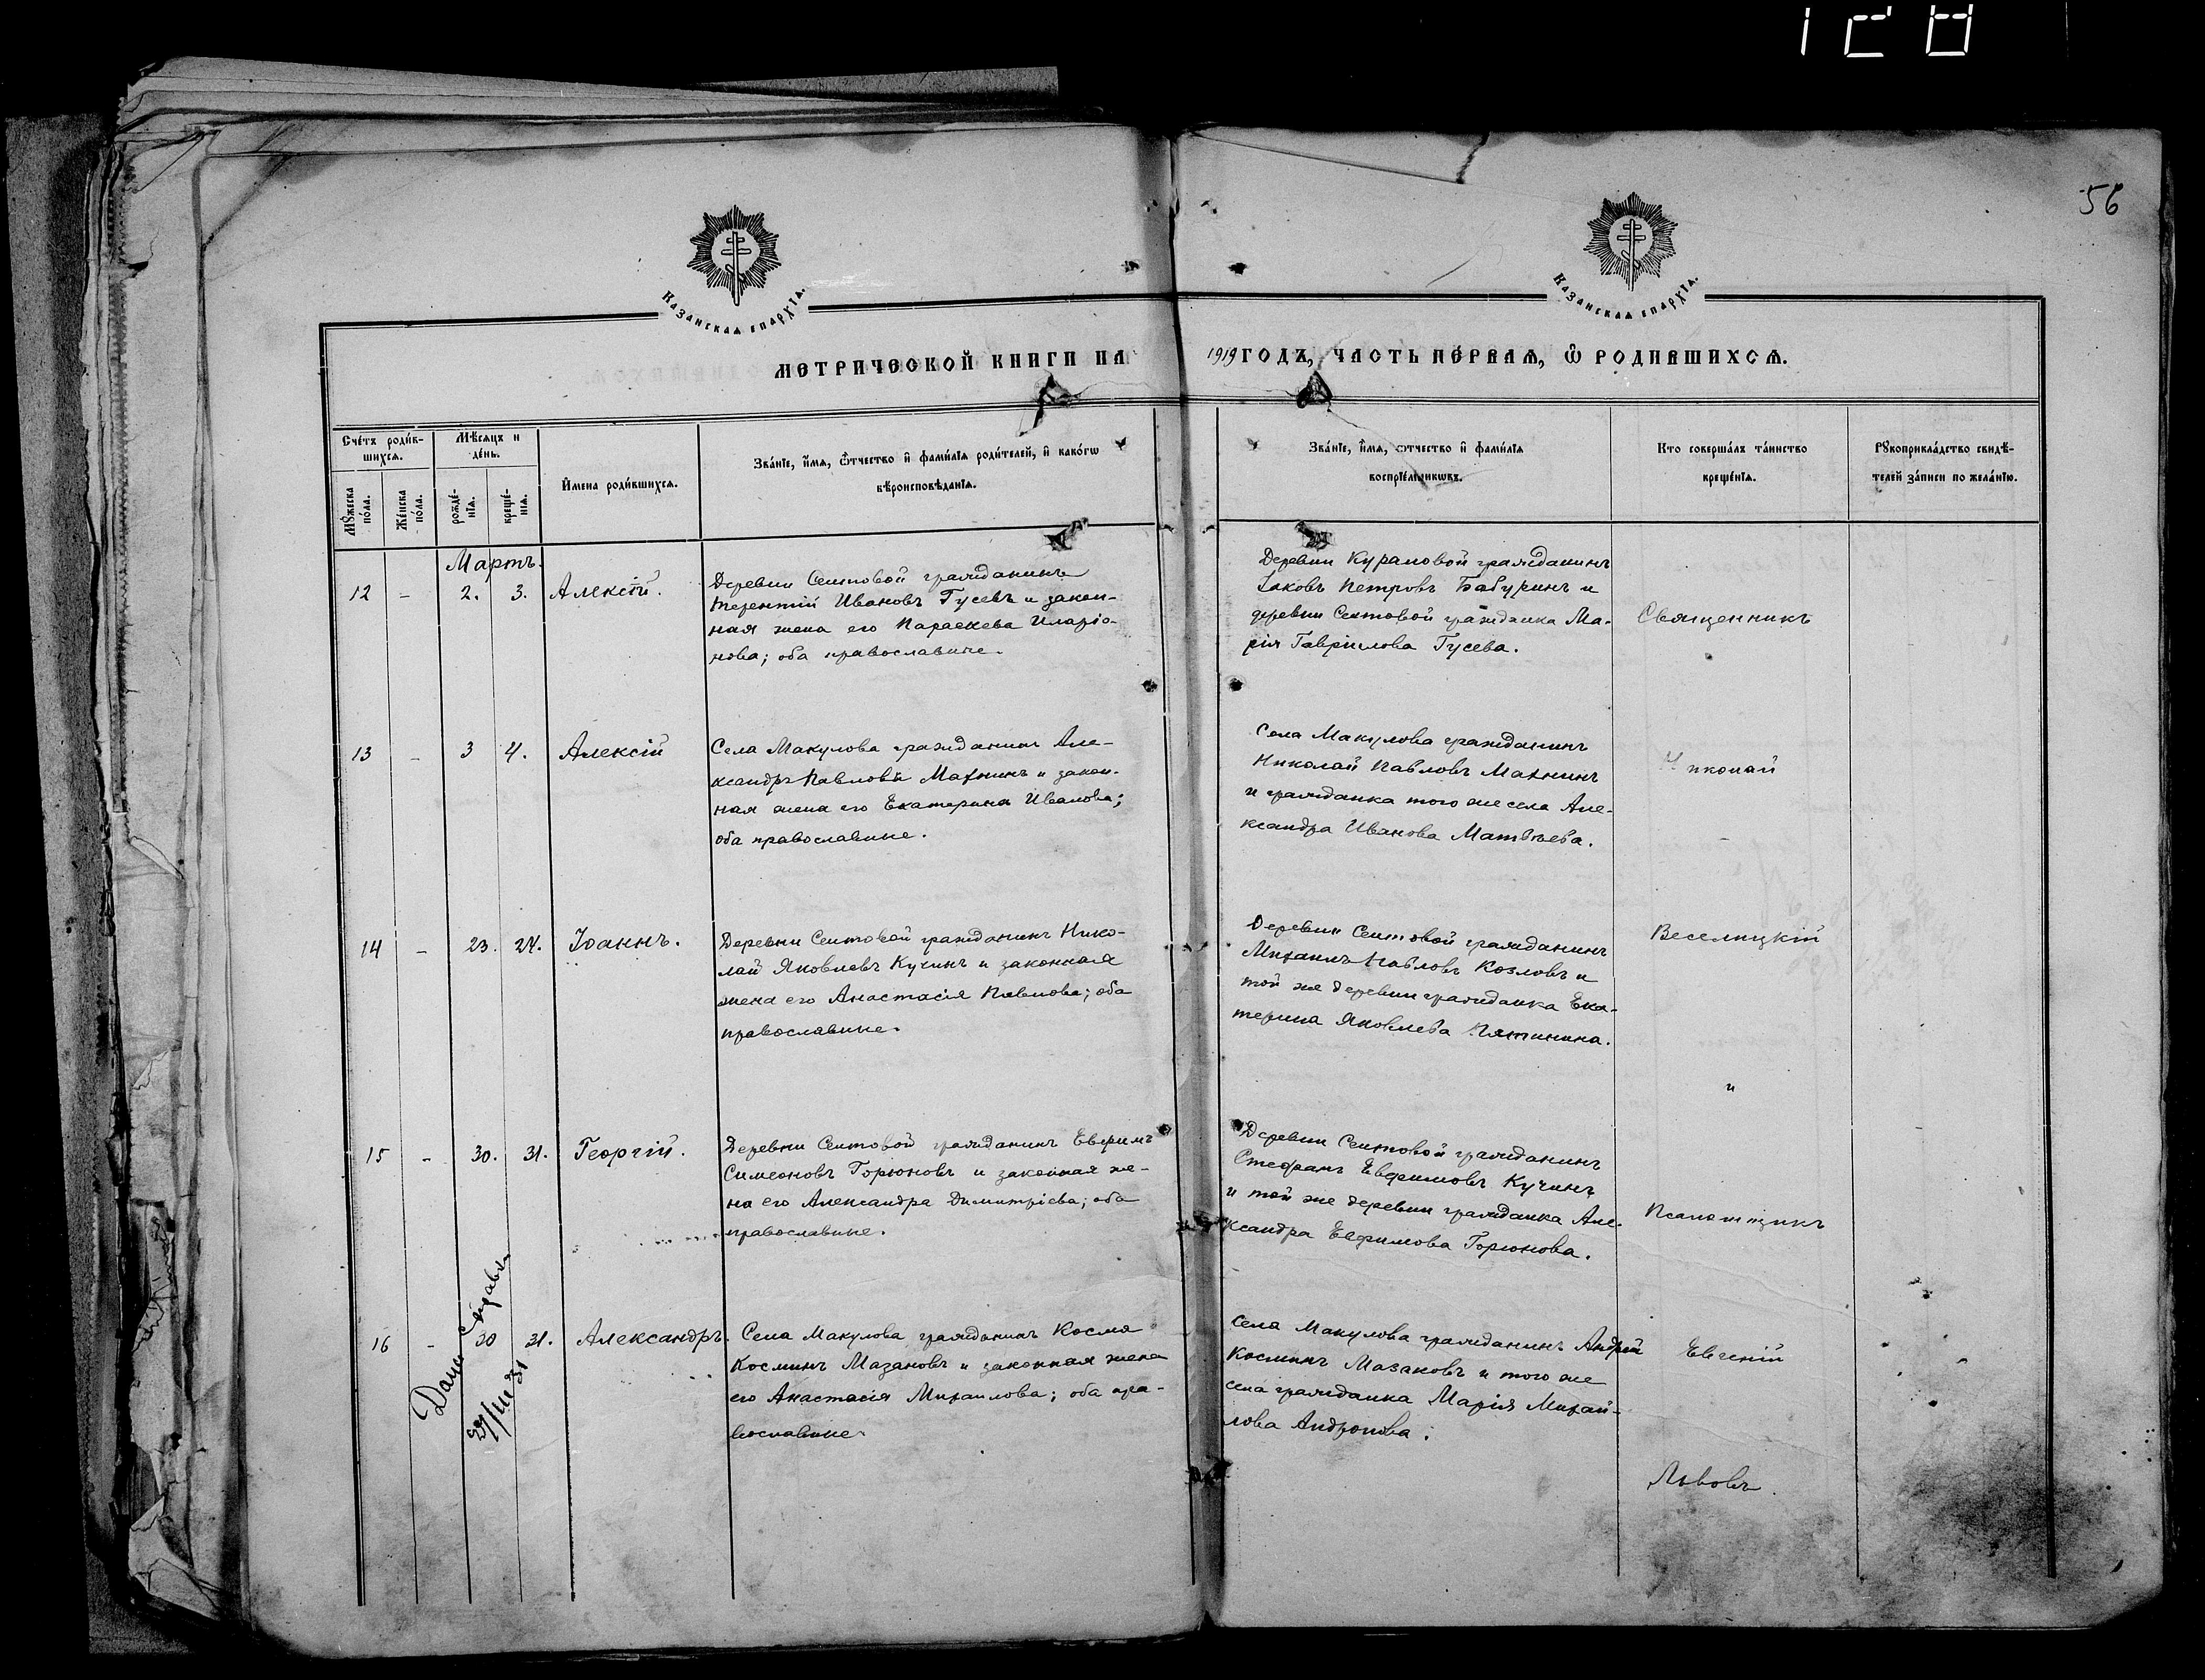 56
Казанская епархїа.
Казанская епархїа.
МЕТРИЧЕСКОЙ КНИГИ НА 1919 ГОДЪ, ЧАСТЬ ПЕРВАЯ, Ѡ РОДИВШИХСЯ.
Счéтъ роди́в-
шихся.
Мѣсяцъ и
дéнь.
Мꙋжеска
пóла.
Жéнска
пóла.
рождé-
нїя.
крещé-
нїя.
И҆мена роди́вшихся.
Звáнїе, и҆́мя, ѻ҆́тчество и҆ фами́лїя роди́телей, и҆ какóгѡ
вѣроисповѣ́данїя.
Звáнїе, и҆́мя, ѻ҆́тчество и҆ фами́лїя
воспрїе́мникѡвъ.
Кто совершáлъ тáинство
крещéнїя.
Рꙋкоприклáдство свидѣ́-
телей зáписи по желáнїю.
Мартъ.
12 - 2. 3. Алексій.
Деревни Сеитовой гражданинъ
Терентій Ивановъ Гусевъ и закон-
ная жена его Параскева Иларіо-
нова; оба православные.
Деревни Кураловой гражданинъ
Іаковъ Петровъ Бабуринъ и
деревни Сеитовой гражданка Ма-
рія Гаврилова Гусева.
Священникъ
13 - 3 4. Алексій
Села Макулова гражданинъ Але-
ксандръ Павловъ Махнинъ и закон-
ная жена его Екатерина Иванова;
оба православные.
Села Макулова гражданинъ
Николай Павловъ Махнинъ
и гражданка того же села Але-
ксандра Иванова Матвѣева.
Николай
14 - 23. 24. Іоаннъ.
Деревни Сеитовой гражданинъ Нико-
лай Яковлевъ Кучинъ и законная
жена его Анастасія Павлова; оба
православные.
Деревни Сеитовой гражданинъ
Михаилъ Павловъ Козловъ и
той же деревни гражданка Ека-
терина Яковлева Пятинина.
Веселицкій
и
15 - 30. 31. Георгій.
Деревни Сеитовой гражданинъ Евфимъ
Симеоновъ Горюновъ и законная же-
на его Александра Димитріева; оба
православные.
Деревни Сеитовой гражданинъ
Стефанъ Евфимовъ Кучинъ
и той же деревни гражданка Але-
ксандра Евфимова Горюнова.
Псаломщикъ
16 - 30 31. Александръ.
Села Макулова гражданинъ Косма
Косминъ Мазановъ и законная жена
его Анастасія Михаилова; оба пра-
вославные.
Села Макулова гражданинъ Андрей
Косминъ Мазановъ и того же
села гражданка Марія Михай-
лова Андронова.
Евгеній
Львовъ.
Дана справка